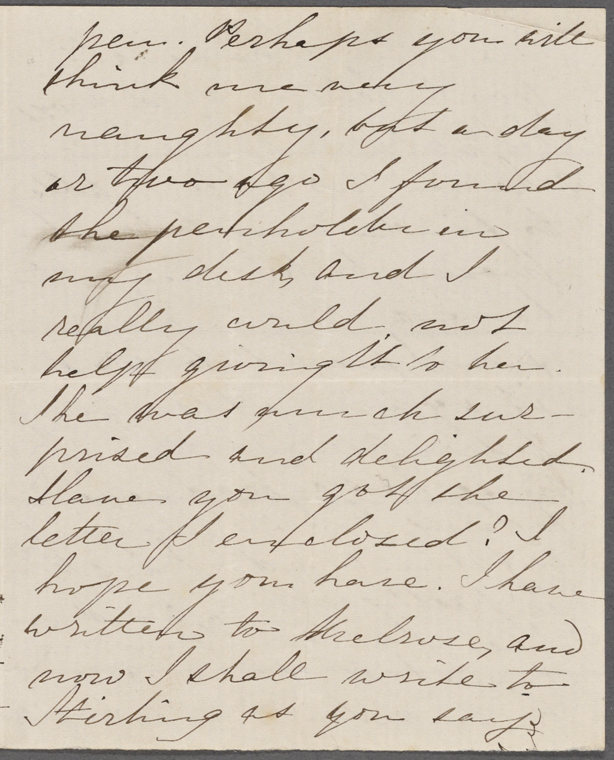 pen. Perhaps you will
think me very
naughty, but a day
or two ago I found
the penholder in
my desk, and I
really could not
help giving it to her.
She was much sur-
prised and delighted.
Have you got the
letter I enclosed? I
hope you have. I have
written to Melrose, and
now I shall write to
Stirling as you say,